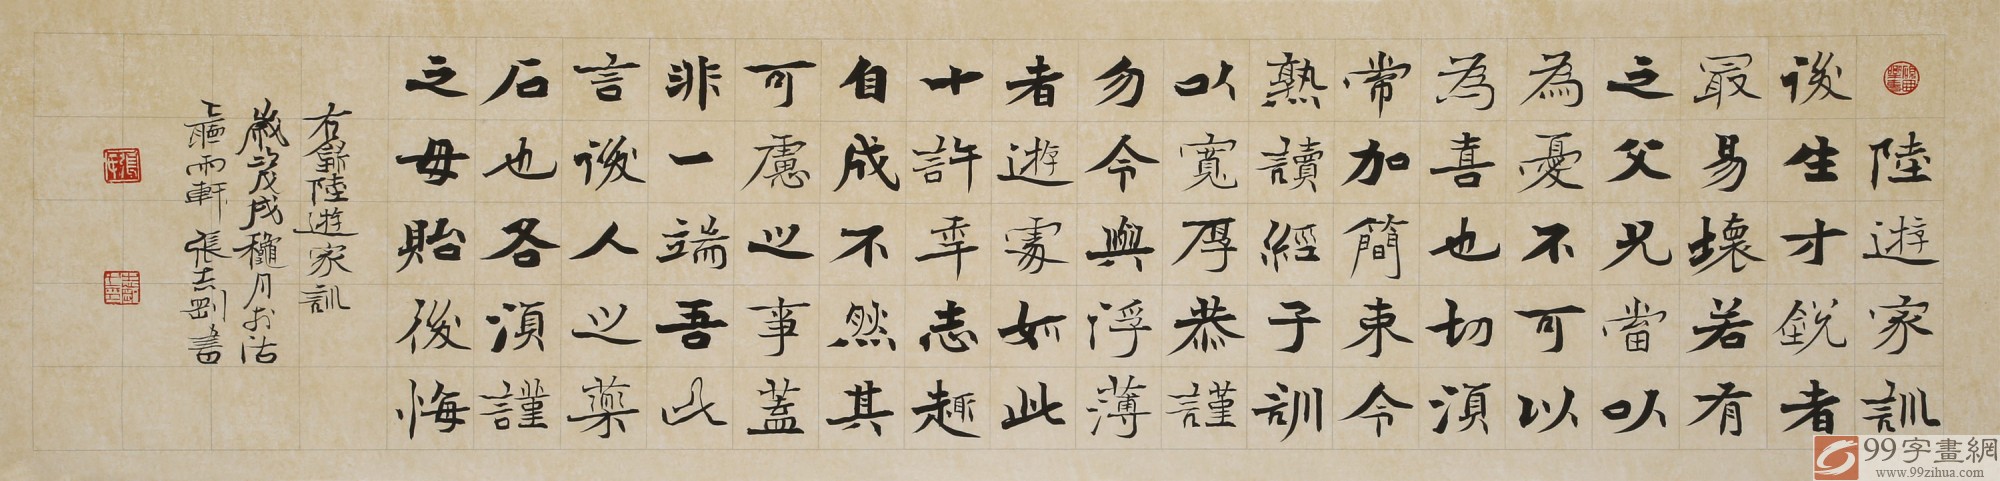 陸遊家訓
後生才銳者
最易壞若有
之父兄當以
為憂不可以
為喜也切須
常加簡束令
熟讀經子訓
以寬厚恭謹
勿令與浮薄
者遊處如此
十許秊志趣
自成不然其
可慮之事蓋
非一端吾此
言後人之藥
石也各須謹
之毋貽後悔
右錄陸遊家訓
歲次戊戌穐月於沽
上聽雨軒張志剛書
99字畫網
www.99zihua.com